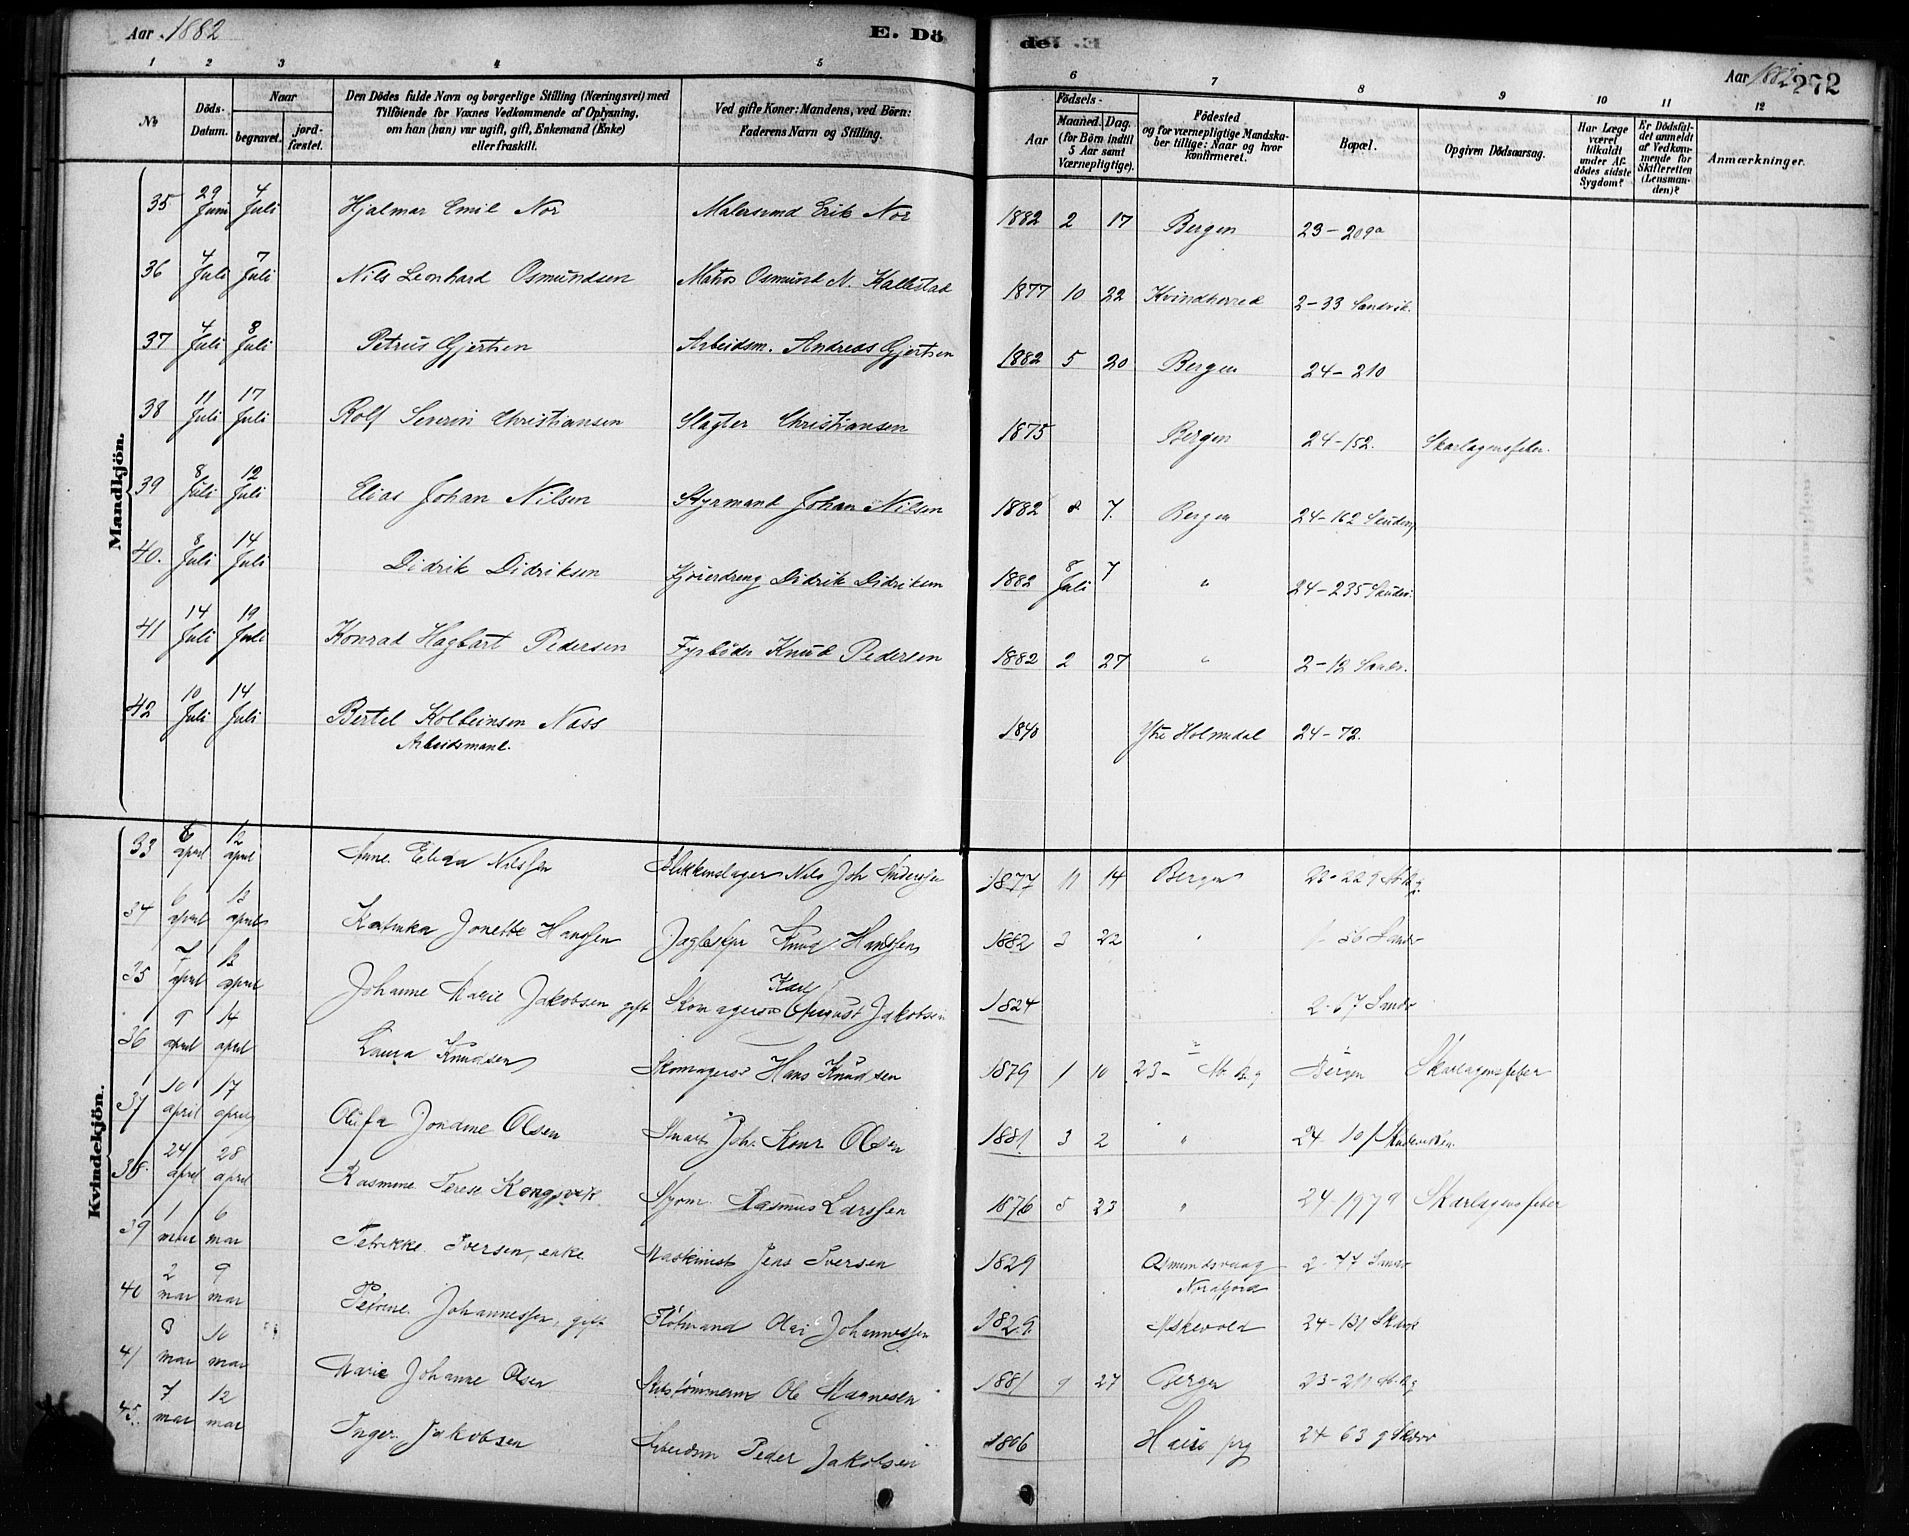 Aar 1882 E. Dö
de. Aar 1882 272
1 2 3 4 5 6 7 8 9 10 11 12
No
Döds-Datum.
Naar
begravet.
jord-fæstet.
Den Dödes fulde Navn og borgerlige Stilling (Næringsvei) med
Tilföiende for Voxnes Vedkommende af Oplysning,
om han (hun) var ugift, gift, Enkemand (Enke)
eller fraskilt.
Ved gifte Koner: Mandens, ved Börn:
Faderens Navn og Stilling.
Födsels-
Aar
Maaned. Dag.
(for Börn indtil
5 Aar samt
Værnepligtige).
Födested
og for værnepligtige Mandska-
ber tillige: Naar og hvor
konfirmeret.
Bopæl.
Opgiven Dödsaarsag.
Har Læge
været
tilkaldt
under Af-
dödes sidste
Sygdom?
Er Dödsfal-
det anmeldt
af Vedkom-
mende for
Skifteretten
(Lensman-
den)?
Anmærkninger.
Mandkjön.
35 29 Juni 4 Juli Hjalmar Emil Nor Malersvend Erik Nor 1882 2 17 Bergen 23-209a
36 4 Juli 7 Juli Nils Leonhard Osmundsen Matros Osmund N. Kallestad 1877 10 22 Kvindherred 2-33 Sandvik.
37 4 Juli 8 Juli Petrus Gjertsen Arbeidsm. Andreas Gjertsen 1882 5 20 Bergen 24-210
38 11 Juli 17 Juli Rolf Severin Christiansen Slagter Christiansen 1875 Bergen 24-152. Skarlagensfeber.
39 8 Juli 12 Juli Elias Johan Nilsen Styrmand Johan Nilsen 1882 7. Bergen 24-162
40. 8 Juli 14 Juli Didrik Didriksen Didrik Didriksen 1882 8 Juli 7 " 24-235 Skudev.
41 14 Juli 19 Juli Konrad Hagbart Pedersen Fyrböder Knud Pedersen 1882 2 27 " 2-12 Sandv.
42 10 Juli 14 Juli Bertel Kolbeinsen Nass 1840 Ytre Holmedal 24-72.
Arbeidsmand.
Kvindekjön.
33 8 april 12 april Anne Elida Nilssen Blikkenslager Nils Joh Anderssen 1877 11 14 Bergen
34 6 april 13 april Katinka Jonette Hanssen Jagteskpr Knud Hanssen 1882 3 22 " Sandv
35 7 april 13 april Johanne Marie Jakobsen gift Skomagersv Karl August Jakobsen 1824 2-67 Sandv
36 9 april 14 april Laura Knudsen Skomagersv Hans Knudsen 1879 1 10 23- Bergen Skarlagensfeber
37 10 april 17 april Olufa Jondine Olsen Joh. Konr Olsen 1881 3 2 " 24
38 24 april 28 april Rasmine Terese Kongsvik Styrm. Rasmus Larssen 1876 5 23 " 24-1979 Skarlagensfeber
39 1 mai 6 mai Petrikke Iversen, enke Maskinist Jens Iversen 1829 Osmundsvaag 2-77 Sandv
Nordfjord
40 2 mai 9 mai Petrine Johannessen, gift Flötmand Olai Johannessen 1829 Askevold 24-131 Skudv
41 3 mai 10 mai Marie Johanne Olsen Ole Magnesen 1881 9 27 Bergen
45. 7 mai 12 mai Inger Jakobsen Arbeidsm Peder Jakobsen 1806 Haus prg 24-63